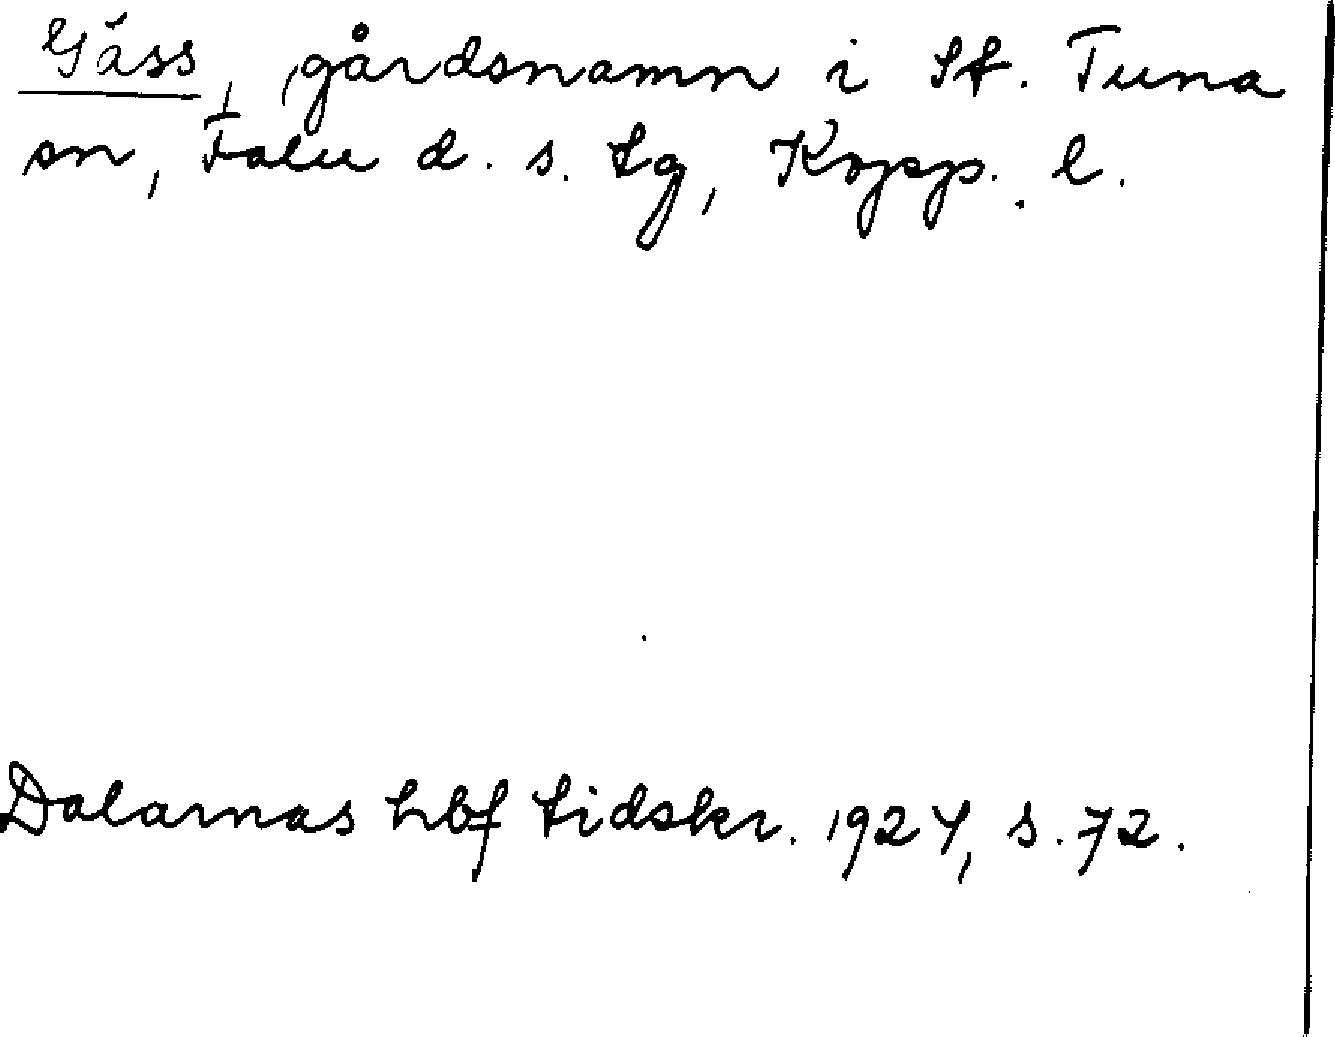 Gäss, gårdsnamn i St. Tuna
sn, Falu d. s. tg, Kopp. l.
Dalarnas hbf tidskr. 1924, s. 72.